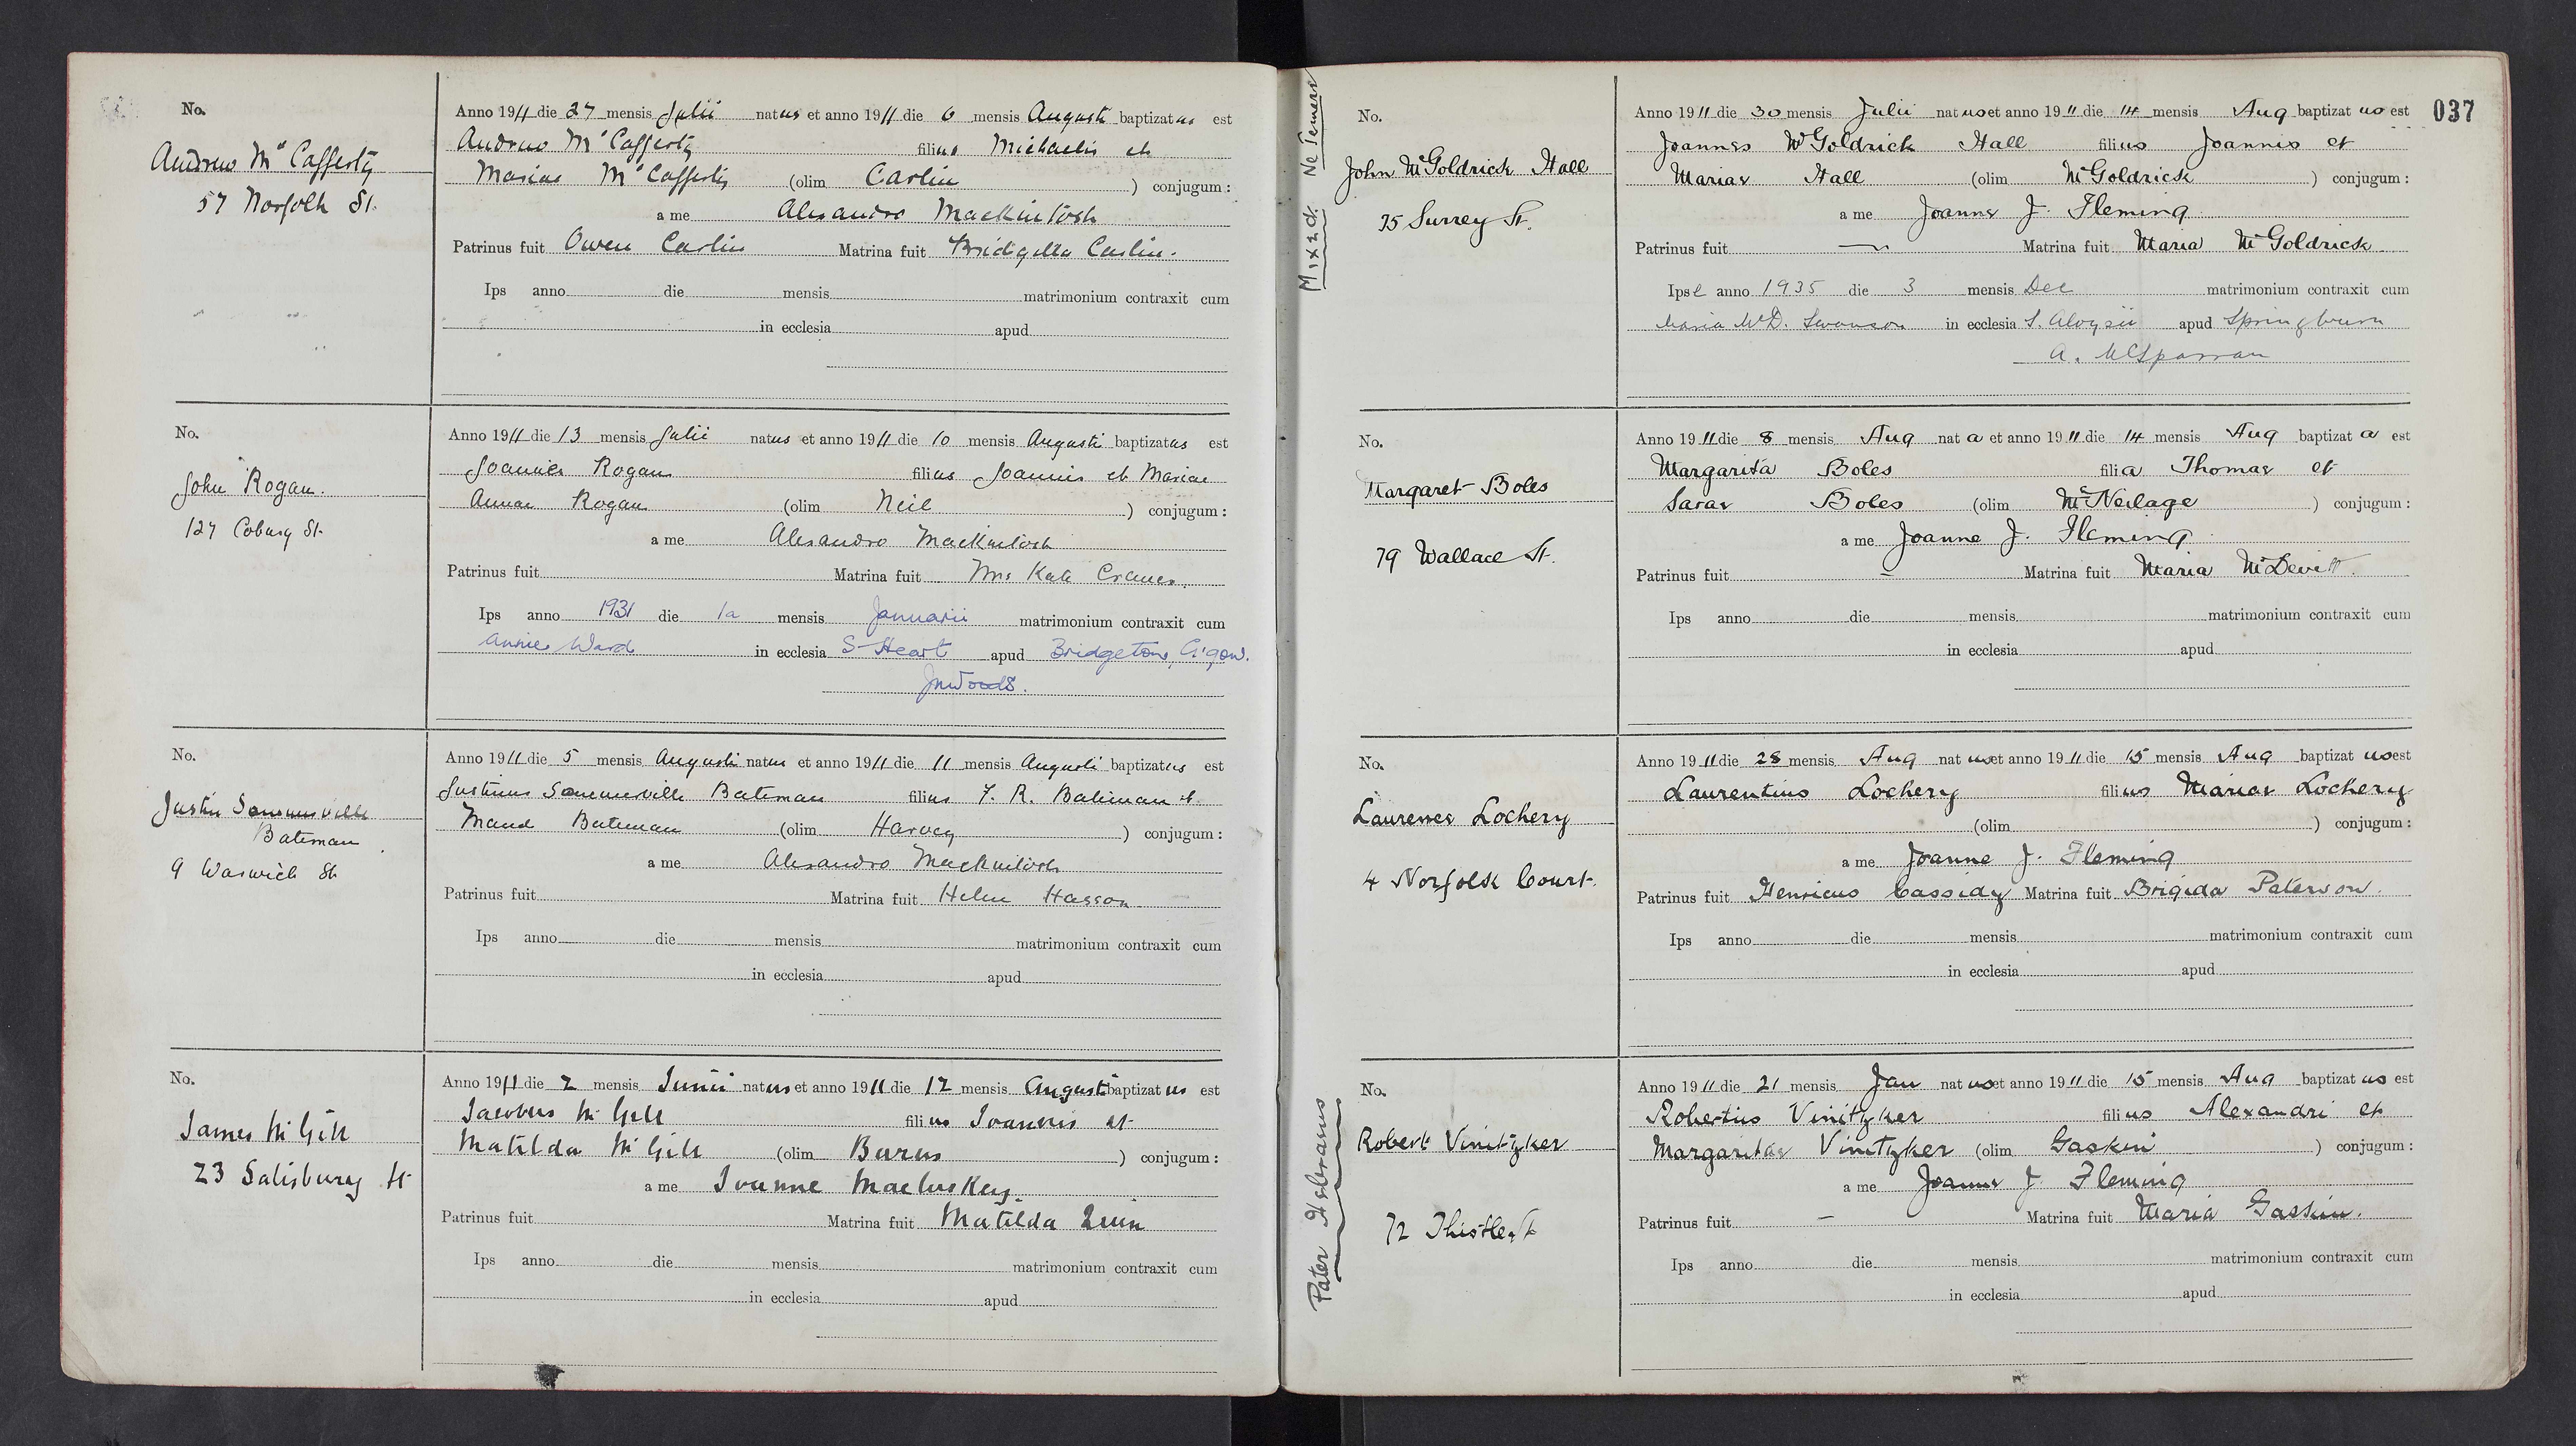 No.
Andrew McCafferty
57 Norfolk St.
Anno 1911 die 27 mensis Julii natus et anno 1911 die 6 mensis Augusti baptizatus est
Andreas McCafferty filius Michaelis et
Mariae McCafferty (olim Carlin ) conjugum:
a me Alexandro Mackintosh
Patrinus fuit Owen Carlin Matrina fuit Bridgetta Carlin.
Ips anno die mensis matrimonium contraxit cum
in ecclesia apud
No.
John Rogan.
127 Coburg St.
Anno 1911 die 13 mensis Julii natus et anno 1911 die 10 mensis Augusti baptizatus est
Joannes Rogan filius Joannis et Mariae
Annae Rogan (olim Neil ) conjugum:
a me Alexandro Mackintosh
Patrinus fuit Matrina fuit Mrs Kate
Ips anno 1931 die 1a mensis Januarii matrimonium contraxit cum
Annie Ward in ecclesia S. Heart apud Bridgeton, G'gow.
JMWoods.
No.
Justin Sommerville
Bateman
9 Warwick St
Anno 1911 die 5 mensis Augusti natus et anno 1911 die 11 mensis Augusti baptizatus est
Justinus Sommerville Bateman filius F. R. Bateman et
Maud Bateman (olim Harvey ) conjugum:
a me Alexandro Mackintosh
Patrinus fuit Matrina fuit Helen Hasson
Ips anno die mensis matrimonium contraxit cum
in ecclesia apud
No.
James McGill
23 Salisbury St
Anno 1911 die 2 mensis Junii natus et anno 1911 die 12 mensis Augusti baptizatus est
Jacobus McGill filius Joannis et
Matilda McGill (olim Burns ) conjugum:
a me Joanne Macluskey.
Patrinus fuit Matrina fuit Matilda Quin
Ips anno die mensis matrimonium contraxit cum
in ecclesia apud
037
Mixed. Ne Temere
No.
John McGoldrick Hall
35 Surrey St.
Anno 1911 die 30 mensis Julii natus et anno 1911 die 14 mensis Aug baptizatus est
Joannes McGoldrick Hall filius Joannis et
Mariae Hall (olim McGoldrick ) conjugum:
a me Joanne J. Fleming
Patrinus fuit — Matrina fuit Maria McGoldrick
Ipse anno 1935 die 3 mensis Dec matrimonium contraxit cum
Maria McD. Swanson in ecclesia S. Aloysii apud Springburn
A. McSparran
No.
Margaret Boles
79 Wallace St.
Anno 1911 die 8 mensis Aug nata et anno 1911 die 14 mensis Aug baptizata est
Margarita Boles filia Thomae et
Sarae Boles (olim McNeilage ) conjugum:
a me Joanne J. Fleming
Patrinus fuit – Matrina fuit Maria McDevitt.
Ips anno die mensis matrimonium contraxit cum
in ecclesia apud
No.
Laurence Lochery
4 Norfolk Court.
Anno 1911 die 28 mensis Aug natus et anno 1911 die 15 mensis Aug baptizatus est
Laurentius Lochery filius Mariae Lochery
(olim ) conjugum:
a me Joanne J. Fleming
Patrinus fuit Henricus Cassidy Matrina fuit Brigida Paterson.
Ips anno die mensis matrimonium contraxit cum
in ecclesia apud
Pater Hebraeus
No.
Robert Vinitzker
72 Thistle St
Anno 1911 die 21 mensis Jan natus et anno 1911 die 15 mensis Aug baptizatus est
Robertus Vinitzker filius Alexandri et
Margaritae Vinitzker (olim Gaskin ) conjugum:
a me Joanne J Fleming
Patrinus fuit – Matrina fuit Maria Gaskin.
Ips anno die mensis matrimonium contraxit cum
in ecclesia apud